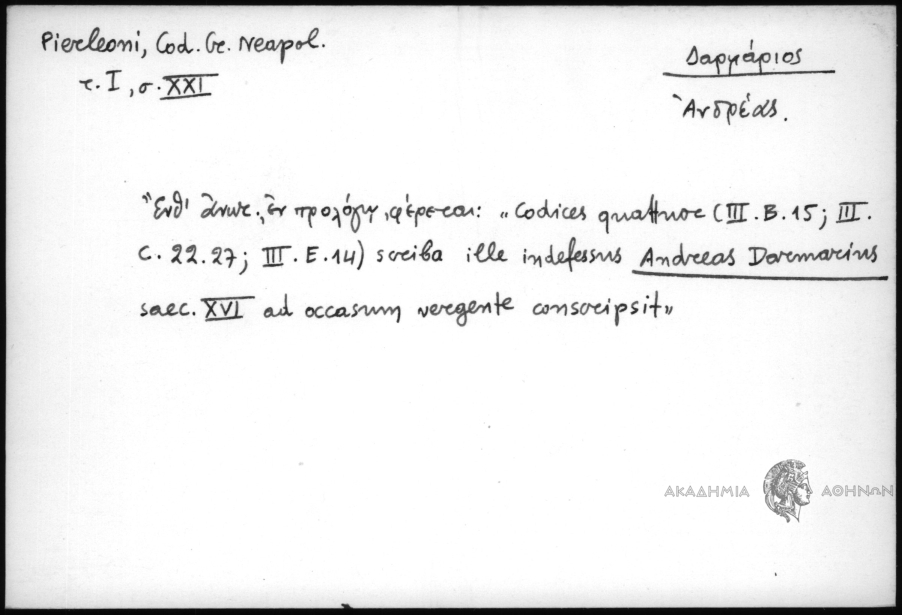 Pierleoni, Cod. Gr. Neapol.
τ. I, σ. XXI
Δαρμάριος
Ἀνδρέας.
Ἔνθ' ἄνωτ., ἐν προλόγῳ, φέρεται: "Codices quattuor (III. B. 15; III.
C. 22. 27; III. E. 14) scriba ille indefessus Andreas Darmarius
saec. XVI ad occasum vergente conscripsit"
ΑΚΑΔΗΜΙΑ ΑΘΗΝΩΝ